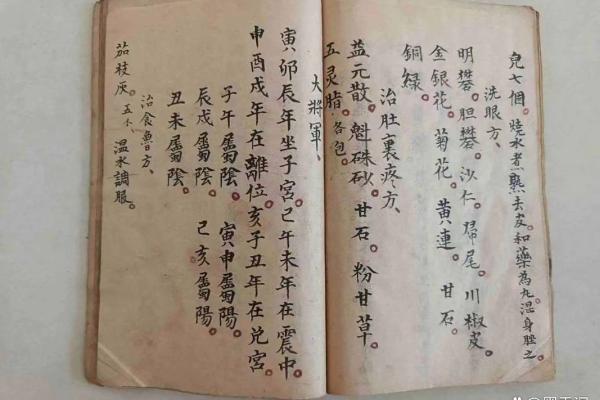 皃七個。燒水煮熟去皮。和藥為丸。湿身胵之
洗眼方、
明礬。胆礬。沙仁。歸尾。川椒皮。
金銀花。菊花。黃連。甘石。
銅綠。
治肚裏疼方、
益元散。魁硃砂。甘石。粉甘草。
五灵脂。各包。
大將軍、
寅卯辰年坐子宮。己午未年在震中。
申酉戌年在離位。亥子丑年在兌宮。
子午屬陰。寅申屬陽。
辰戌屬陰。己亥屬陽。
丑未屬陰。
治食魚方、
茄枝灰。五个、温水調服。